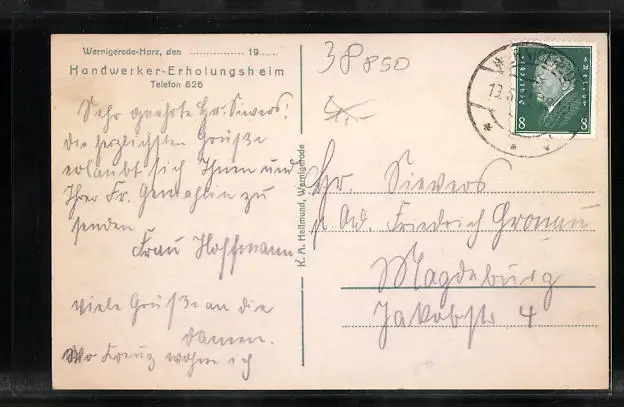 Wernigerode-Harz, den .................. 19......
Handwerker-Erholungsheim
Telefon 626
38850
Sehr geehrte Hr. Sievers!
die herzlichsten Grüße
erlaubt sich Ihnen und
Ihrer Fr. Gemahlin zu
senden
Frau Hoffmann
viele Grüße an die
Damen.
Wo Kreuz wohne ich
K. A. Hellmund, Wernigerode
Deutsches Reich
8 8
Hr. Sievers
p. Ad. Friedrich Gronau
Magdeburg
Jakobstr. 4